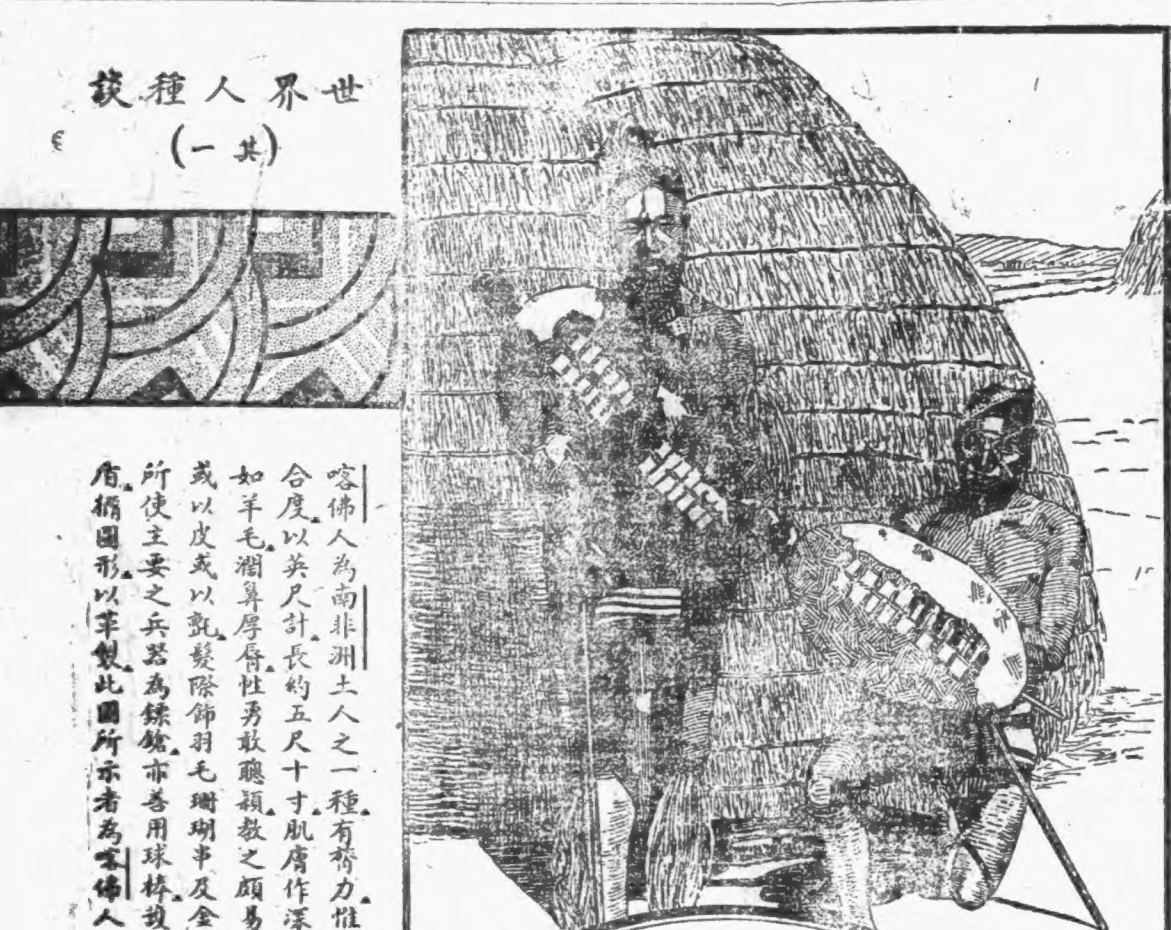 世界人種談
(其一)
喀佛人為南非洲土人之一種有膂力惟
合度以英尺計長約五尺十寸肌膚作深
如羊毛濶鼻厚唇性勇敢聰穎教之頗易
或以皮或以氈髮際飾羽毛珊瑚串及金
所使主要之兵器為鏢鎗亦善用球棒
盾橢圓形以革製此圖所示者為喀佛人